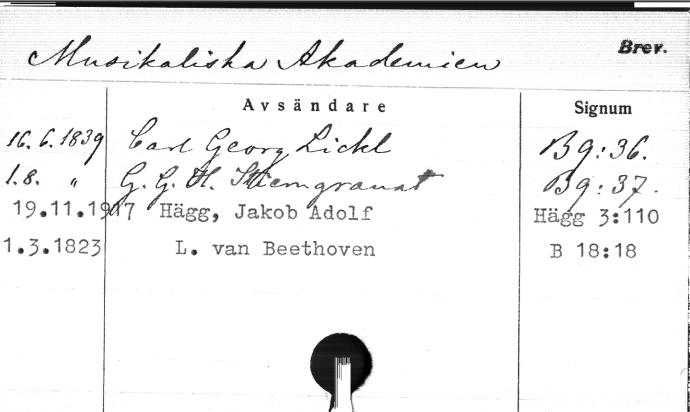 Musikaliska Akademien Brev.
Avsändare Signum
16.6.1839 Carl Georg Lickl B 9:36.
1.8. " G. G. H. Stierngranat B 9:37.
19.11.1917 Hägg, Jakob Adolf Hägg 3:110
1.3.1823 L. van Beethoven B 18:18